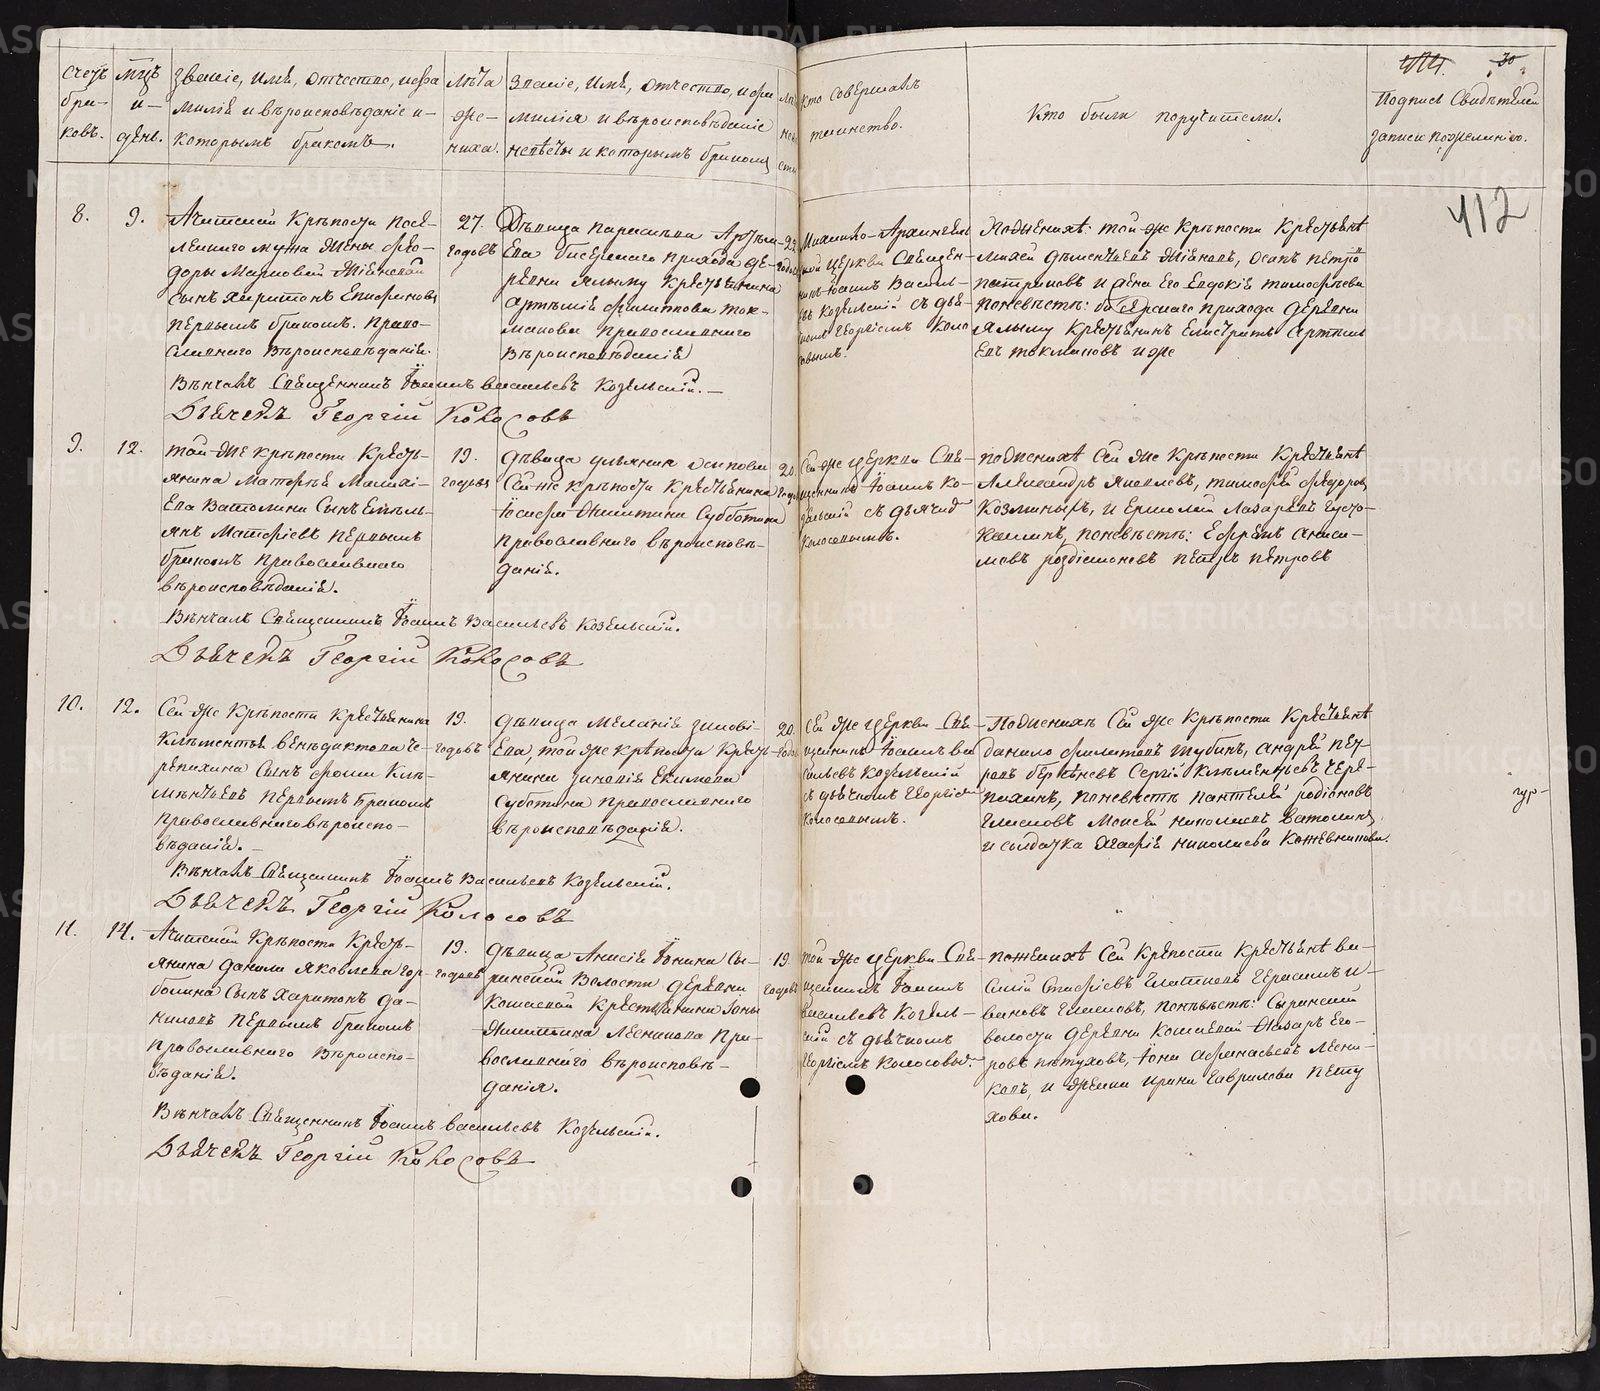 счетъ бра- ковъ.
мцъ и день.
Званіе, имя, отчество, и фа
милія и вѣроисповѣданіе и
которымъ бракомъ.
лѣта
же-
ниха.
Званіе, имя, отчество, и фа
милія и вѣроисповѣданіе
невѣсты и которымъ бракомъ
кто совершалъ
таинство.
Кто были поручители.
Подпись Свидѣтелей
записи по желанію.
30
412
8.
9.
Ачитской Крѣпости посе-
леннаго мужа жены Ѳео-
сынъ Харитонъ
первымъ бракомъ. Право-
славнаго вѣроисповѣданія.
27.
годовъ
Дѣвица Параскева Артемь-
ева Бисерскаго прихода де-
ревни Ялыму Крестьянина
Артемія Филиппова Ток-
манова православнаго
вѣроисповѣданія
Михаило-Архангель
ской церкви Священ-
никъ Іоаннъ Василь-
евъ Козельскій съ дья-
Георгіемъ Коло
совымъ.
По женихѣ: той же Крѣпости Крестьяне
и жена его Евдокія Тимофѣева
по невѣстѣ: Бисерскаго прихода деревни
Ялыму Крестьянинъ Елистратъ Артемь
евъ Токмановъ и же
Вѣнчалъ Священникъ Іоаннъ Васильевъ Козельскій.
Дьячекъ Георгій Колосовъ
9.
12.
той же крѣпости Кресть-
янина Матвѣя Малахі-
ева Ватолина Сынъ Емель-
янъ Матвѣевъ первымъ
бракомъ православнаго
вѣроисповѣданія.
19.
годовъ
дѣвица Ульяния Осипова
Сей же крѣпости Крестьянина
Іосифа Никитина Субботина
православнаго вѣроисповѣ-
данія.
20.
Сей же церкви Свя-
щенникъ Іоаннъ Ко-
зельскій съ дьячко
Колосовымъ.
по женихѣ Сей же Крѣпости Крестьяне
Александръ Яковлевъ, Тимофей Федоровъ
Козминыхъ, и Ермолай Лазаревъ Густо-
кашинъ, по невѣстѣ: Ефремъ Аниси-
мовъ Родіоновъ Петръ Петровъ
Вѣнчалъ Священникъ Іоаннъ Васильевъ Козельскій.
Дьячекъ Георгій Колосовъ
10.
12.
Сей же Крѣпости Крестьянина
Климентья Венедиктова Че-
репахина Сынъ Фома Кли-
ментьевъ первымъ бракомъ
православнаго вѣроиспо-
вѣданія.
19.
годовъ
дѣвица Меланія Зиновь-
ева, той же крѣпости Кресть-
янина Зиновія Екимова
Суботина православнаго
вѣроисповѣданія.
20.
Сей же церкви Свя-
щенникъ Іоаннъ Ва
сильевъ Козельскій
съ дьячкомъ Георгіе
Колосовымъ.
По женихѣ Сей же Крѣпости Крестьяне
Данило Филиповъ Шубинъ, Андрей Пет-
ровъ Сергій Климентьевъ Чере-
пахинъ, по невѣстѣ Пантелей Родіоновъ
Моисей Николаевъ Ватолинъ
и солдатка Агафія Николаева Кожевникова.
Вѣнчалъ Священникъ Іоаннъ Васильевъ Козельскій.
Дьячекъ Георгій Колосовъ
11.
14.
Ачитской Крѣпости Кресть-
янина Данилы Яковлева Гор-
болина Сынъ Харитонъ Да-
ниловъ первымъ бракомъ
православнаго вѣроиспо-
вѣданія.
19.
годовъ
дѣвица Анисія Іонина Сы-
ринской Волости деревни
Кошаевой Крестьянина Іоны
Никитина Лесникова Пра-
вославнаго вѣроисповѣ-
данія.
19.
годовъ
той же церкви Свя-
щенникъ Іоаннъ
Васильевъ Козель-
скій съ дьячкомъ
Георгіемъ Колосовы
по женихѣ Сей Крѣпости Крестьяне Ва-
силій Герасимъ И-
вановъ по невѣстѣ: Сыринской
волости деревни Кошаевой Назаръ Его-
ровъ Пѣтуховъ, Іона Афанасьевъ Лесни-
ковъ, и жена Ирина Гаврилова Пету
хова.
Вѣнчалъ Священникъ Іоаннъ Васильевъ Козельскій.
Дьячекъ Георгій Колосовъ
METRIKI.GASO-URAL.RU